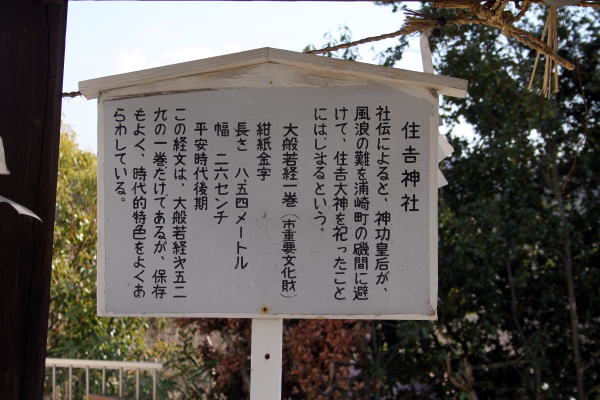 住吉神社
社伝によると、神功皇后が、
風浪の難を浦崎町の磯間に避
けて、住吉大神を祀ったこと
にはじまるという。
大般若経一巻（市重要文化財）
紺紙金字
長さ　八・五四メートル
幅　二六センチ
平安時代後期
この経文は、大般若経㐧五二
九の一巻だけであるが、保存
もよく、時代的特色をよくあ
らわしている。